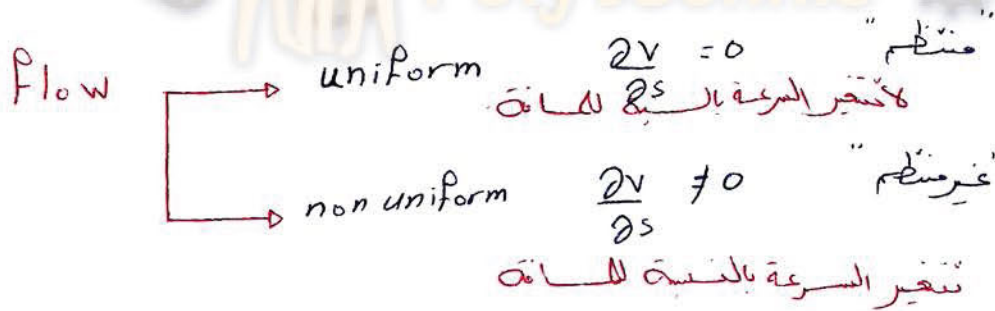 Polytechnic
flow
uniform ∂V/∂s = 0 "منتظم"
لا تتغير السرعة بالنسبة للمسافة
non uniform ∂V/∂s ≠ 0 "غير منتظم"
تتغير السرعة بالنسبة للمسافة